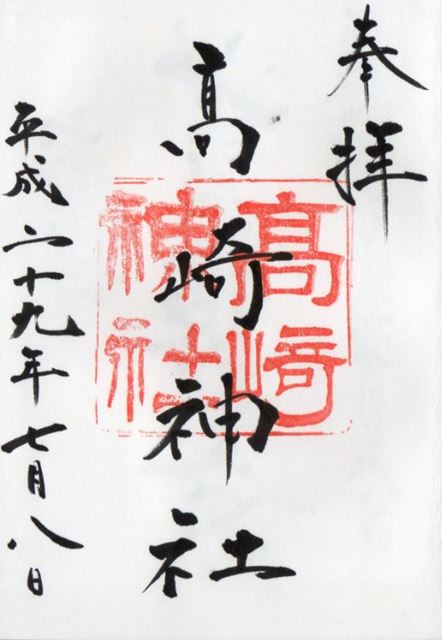 奉拝
高崎神社
髙﨑
神社
平成二十九年七月八日